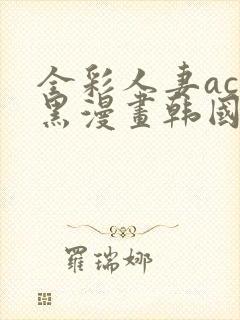 全彩人妻ac
黑漫畫韩國
羅瑞娜